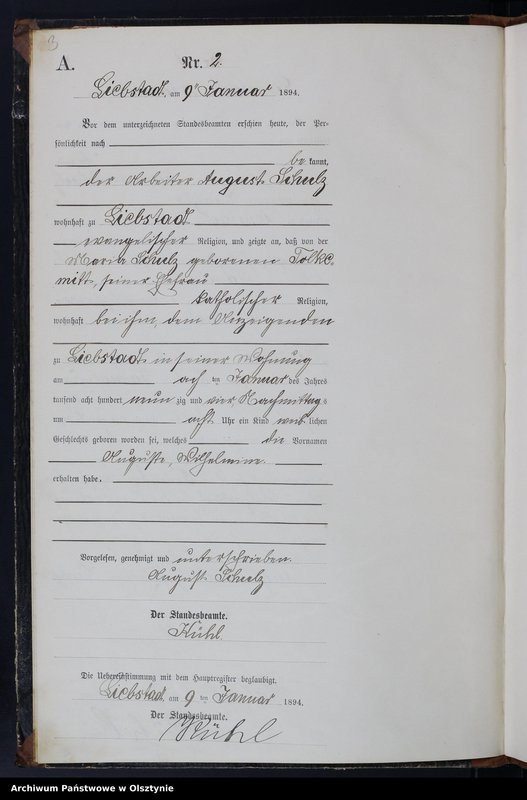 3
A.
Nr. 2.
Liebstadt, am 9ten Januar 1894.
Vor dem unterzeichneten Standesbeamten erschien heute, der Per-
sönlichkeit nach
be kannt,
der Arbeiter August Schulz
wohnhaft zu Liebstadt
evangelischer Religion, und zeigte an, daß von der
Maria Schulz geborenen Tolkc.
mitt, seiner Ehefrau
katholischer Religion,
wohnhaft bei ihm, dem Anzeigenden
zu Liebstadt in seiner Wohnung
am acht ten Januar des Jahres
tausend acht hundert neun zig und vier Nachmittag s
um acht Uhr ein Kind weib lichen
Geschlechts geboren worden sei, welches die Vornamen
Auguste, Wilhelmine.
erhalten habe.
Vorgelesen, genehmigt und unterschrieben.
August Schulz
Der Standesbeamte.
Kühl
Die Uebereinstimmung mit dem Hauptregister beglaubigt.
Liebstadt, am 9 ten Januar 1894.
Der Standesbeamte.
Kühl
Archiwum Państwowe w Olsztynie